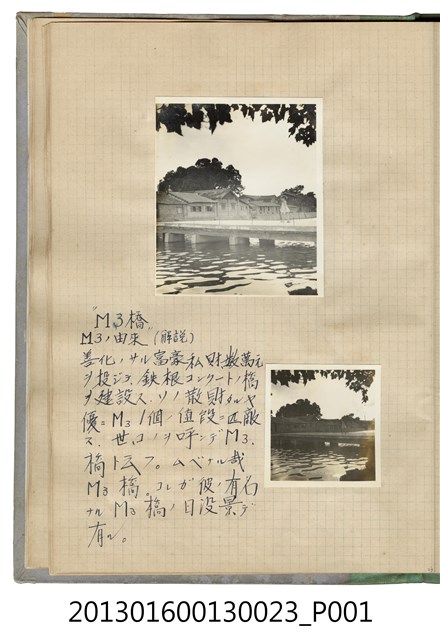 "M3橋"
M3ノ由来"(解説)
善化ノサル富豪私財数萬元
ヲ投ジテ鉄根コンクリート橋
ヲ建設ス.ソノ散財タルヤ
優ニM3 1個ノ値段ニ匹敵
ス.世人コノヲ呼ンデM3.
橋ト云フ。ムベナル哉
M3橋.コレガ彼ノ有名
ナルM3橋ノ日没景デ
有ル。
201301600130023_P001